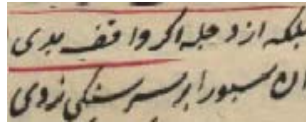 بلکه از دجله اکر واقف بدی
ان سبورا بر سر سنکی زدی